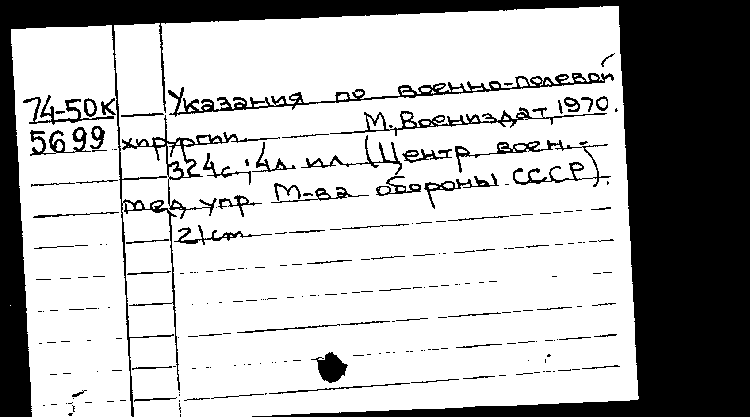 74-50к Указания по военно-полевой
5699 хирургии. М., Воениздат, 1970.
324с.; 4л. ил. (Центр. воен.-
мед. упр. М-ва обороны СССР).
21см.